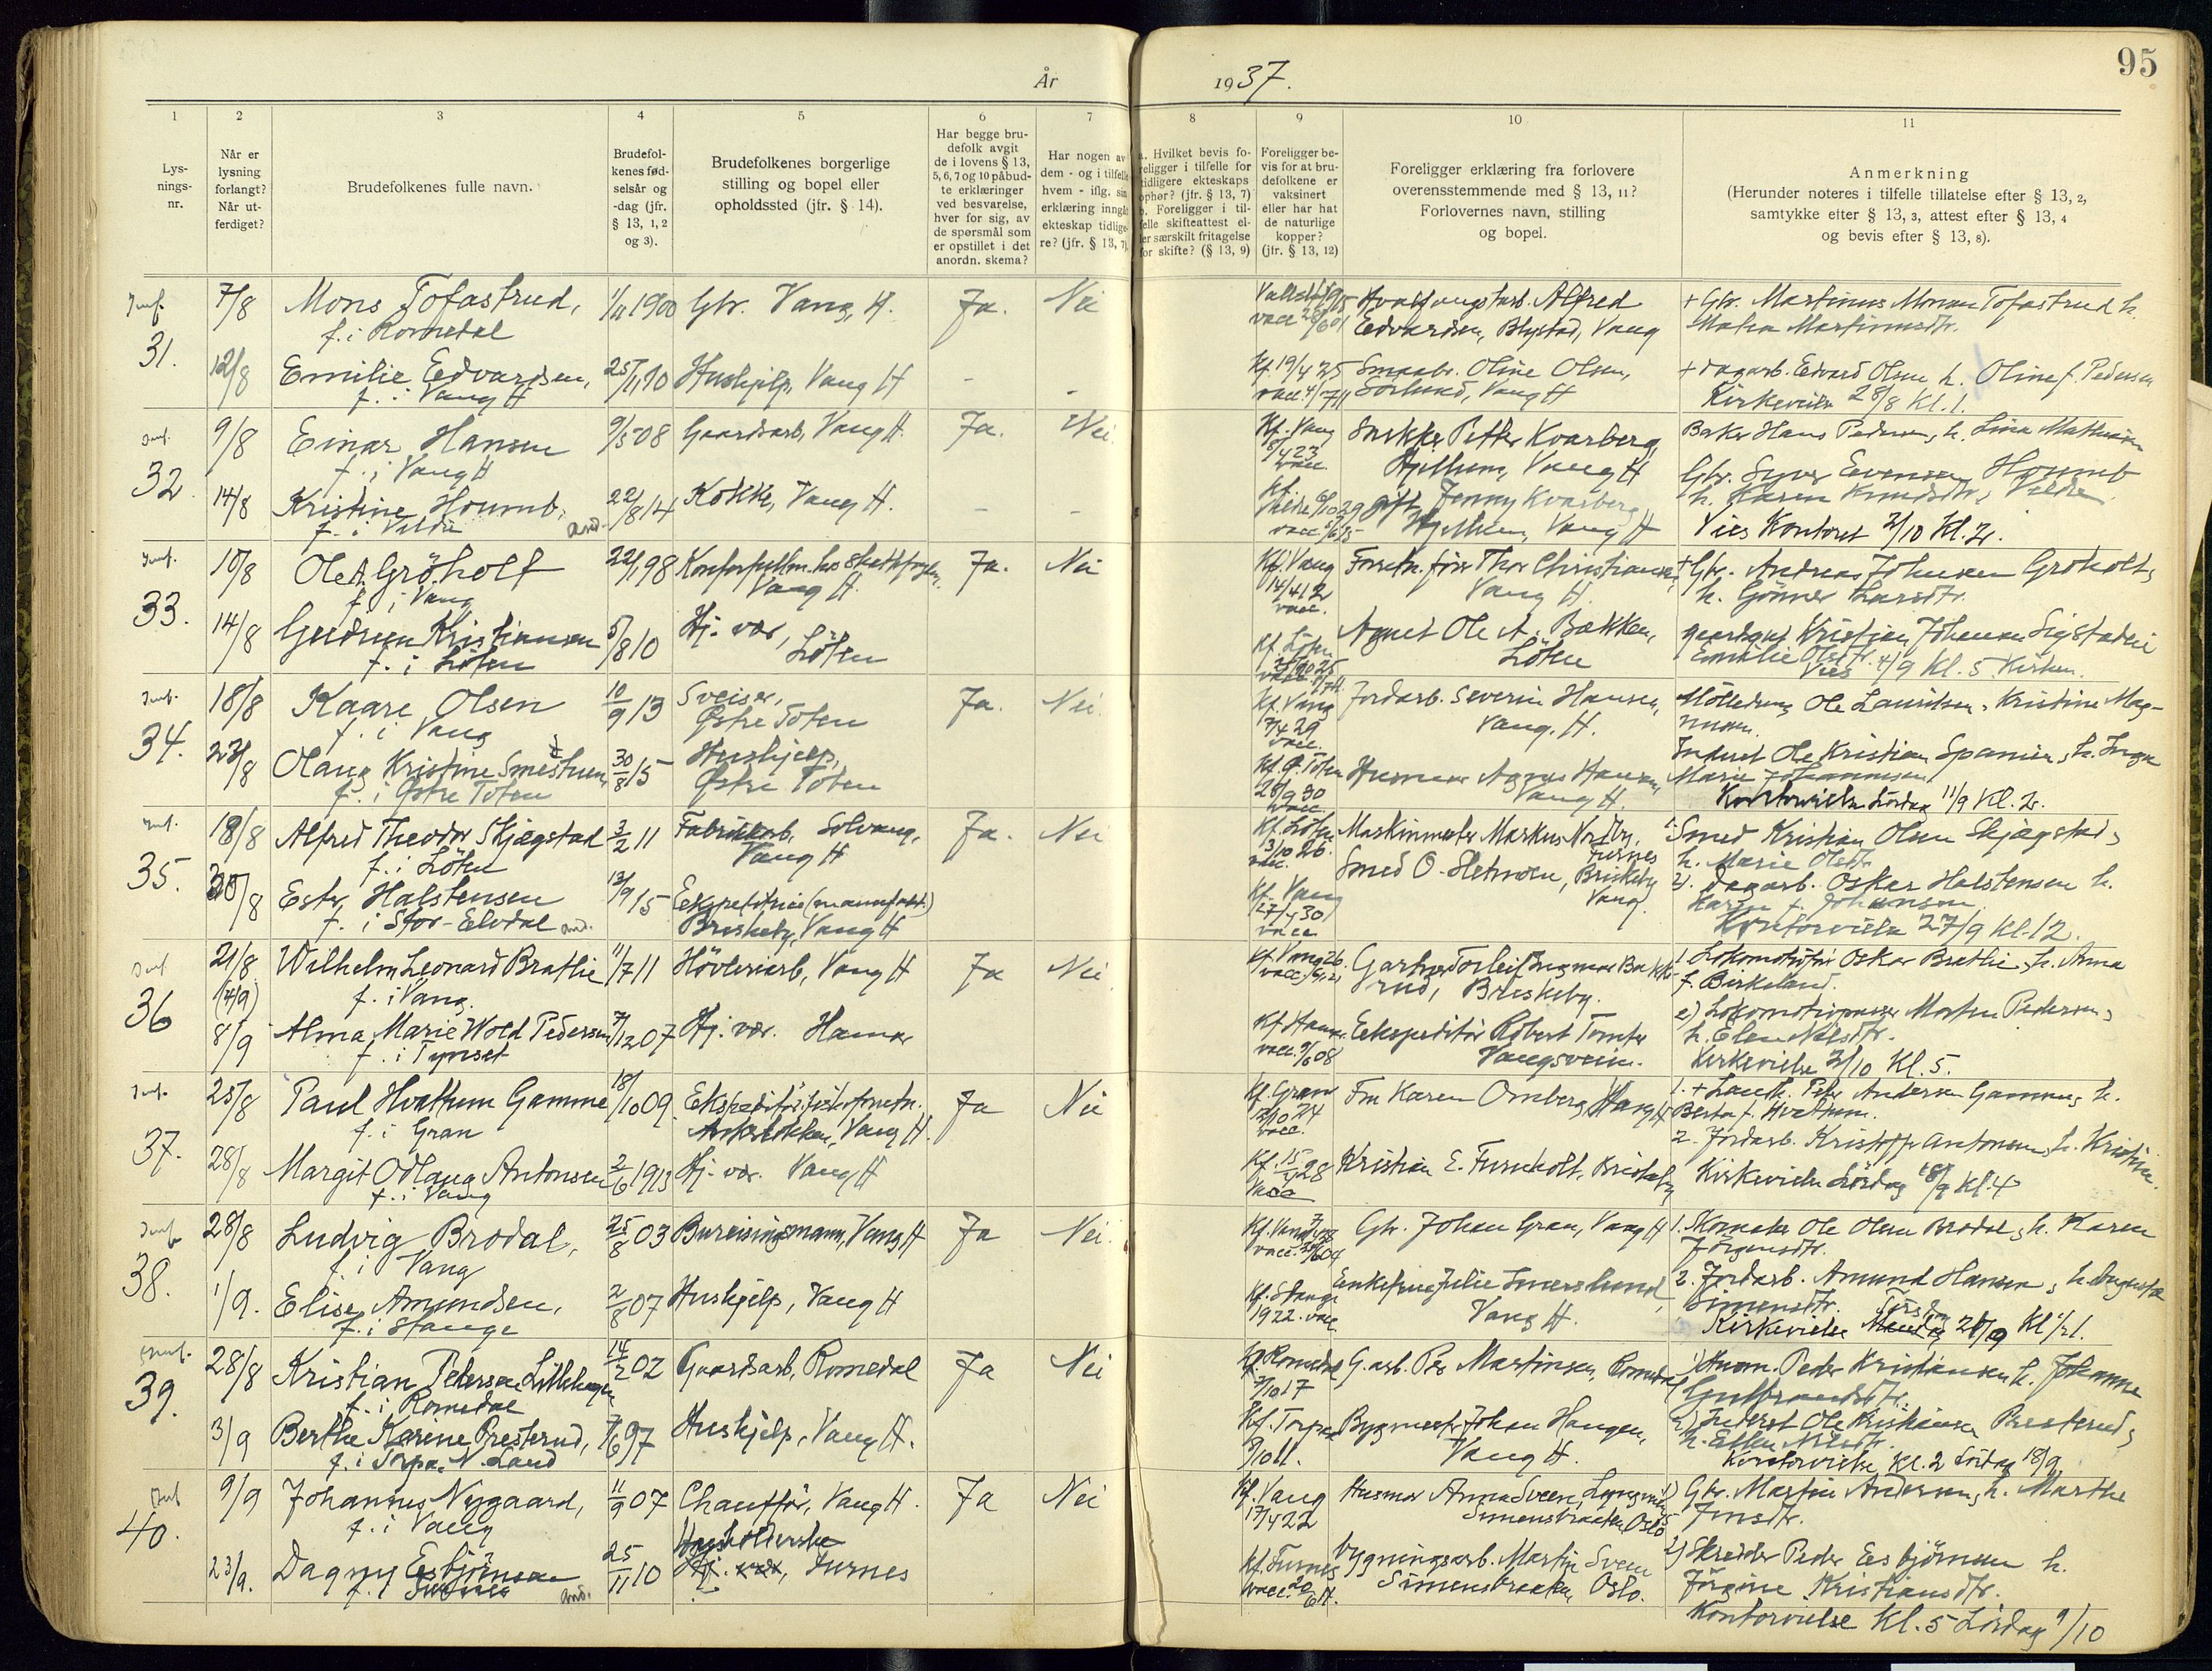 95
År 1937.
1
2
3
4
5
6
7
8
9
10
11
Lys-
nings-
nr.
Når er
lysning
forlangt?
Når ut-
ferdiget?
Brudefolkenes fulle navn.
Brudefol-
kenes fød-
selsår og
-dag (jfr.
§ 13, 1, 2
og 3).
Brudefolkenes borgerlige
stilling og bopel eller
opholdssted (jfr. § 14).
Har begge bru-
defolk avgit
de i lovens § 13,
5, 6, 7 og 10 påbud-
te erklæringer
ved besvarelse,
hver for sig, av
de spørsmål som
er opstillet i det
anordn. skema?
Har nogen av
dem - og i tilfelle
hvem - iflg. sin
erklæring inngåt
ekteskap tidlige-
re? (jfr. § 13, 7).
a. Hvilket bevis fo-
religger i tilfelle for
tidligere ekteskaps
ophør? (jfr. § 13, 7)
b. Foreligger i til-
felle skifteattest el-
ler særskilt fritagelse
for skifte? (§ 13, 9)
Foreligger be-
vis for at bru-
defolkene er
vaksinert
eller har hat
de naturlige
kopper?
(jfr. § 13, 12)
Foreligger erklæring fra forlovere
overensstemmende med § 13, 11?
Forlovernes navn, stilling
og bopel.
Anmerkning
(Herunder noteres i tilfelle tillatelse efter § 13, 2,
samtykke efter § 13, 3, attest efter § 13, 4
og bevis efter § 13, 8).
31.
7/8 Mons Tofastrud, 1/11 1900 Gbr. Vang, H. Ja. Nei
f. i Romedal
Hvalfangstarb. Alfred
Edvardsen, Blystad, Vang
+ Gbr. Martinus Monsen Tofastrud h.
Martinusdtr.
12/8 Emilie Edvardsen, 25/11 10 Hushjelp, Vang H - -
f. i Vang H
Kf. 19/4 25 Smaabr. Oline Olsen,
Sørlund, Vang H
+ Dagarb. Edvard Olsen h. Oline f. Pedersen
Kirkevielse 28/8 Kl. 1.
32.
9/8 Einar Hansen 9/5 08 Gaardsarb, Vang H. Ja. Nei.
f. i Vang H
Kf. Vang
8/4 23
vacc.
Snekker Petter Kvarberg,
Hjellum, Vang H
Baker Hans Pedersen, h. Lina Mathisen
14/8 Kristine Houmb, 22/8 14 Kokke, Vang H. - -
f. i Veldre
gift Jenny Kvarberg
Hjellum, Vang H
Gbr. Syver Evensen Houmb
h. Karen Knudsdtr, Veldre
Vies Kontoret 2/10 Kl. 2.
33.
10/8 Ole A. Grøholt 22/1 98 Kontorfullm. hos Skattefogden, Ja. Nei
f. i Vang
Vang H.
Kf. Vang
14/4 12
vacc.
Forretn. fører Thor Christiansen,
Vang H
+ Gbr. Andreas Johnsen Grøholt,
h. Gunner Larsdtr.
14/8 Gudrun Kristiansen 5/8 10 Hj. vær, Løten
f. i Løten
Agent Ole A. Bakken,
Løten
Gaardbr. Kristian Johansen Sigstadlie
Emilie Olsdtr. 4/9 Kl. 5 Kirken.
Vies
34.
18/8 Kaare Olsen 10/9 13 Sveiser, Ja. Nei.
f. i Vang Østre Toten
Kf. Vang
7/4 29
vacc.
Jordarb. Severin Hansen,
Vang. H.
Mølledreng Ole Lauritsen, Kristine Mag-
nusen.
23/8 Olaug Kristine Smestuen 30/8 15 Hushjelp,
f. i Østre Toten Østre Toten
Kf. Ø. Toten
28/9 30
vacc.
Husmor Agnes Hansen,
Vang H.
Inderst Ole Kristian Spanien, h. Inga
Marie Johannesen
Kontorvielse Lørdag 11/9 Kl. 2.
35.
18/8 Alfred Theodor Skjægstad 3/2 11 Fabrikkarb, Solvang, Ja. Nei
f. i Løten Vang H
Kf. Løten
3/10 26.
vacc.
Maskinmester Markus Nordby,
Furnes
1. Smed Kristian Olsen Skjægstad,
h. Marie Olsdtr.
30/8 Ester Halstensen 13/9 15 Ekspeditrice (manufakt.)
f. i Stor-Elvdal Briskeby, Vang H
Kf. Vang
27/4 30
vacc
Smed O. Hetmoen, Briskeby
Vang.
2. Dagarb. Oskar Halstensen h.
Karen f. Johansen
Kontorvielse 27/9 Kl. 12.
36
21/8 Wilhelm Leonard Brathie 11/7 11 Høvleriarb, Vang H Ja Nei
(4/9) f. i Vang.
Kf. Vang 26.
Gartner Torleif Ingmar Bakke-
rud, Briskeby.
1 Lokomotivfør Oskar Brathie, h. Anna
f. Birkeland.
8/9 Alma Marie Wold Pedersen 7/12 07 Hj. vær. Hamar
f. i Tynset
Kf. Hamar
vacc. 9/6 08
Ekspeditør Robert Tomter
Vangsveien.
2) Lokomotivpusser Morten Pedersen,
h. Elen Nilsdtr.
Kirkevielse 2/10 Kl. 5.
37.
25/8 Paul Hvattum Gamme 18/10 09 Ekspeditør i fiskeforretn. Ja Nei
f. i Gran Ankerløkken, Vang H.
Kf. Gran
12/10 24
vacc.
Fru Karen Ornberg, Vang H
1. + Landh. Peter Andersen Gamme, h.
Berta f. Hvattum.
28/8 Margit Odlaug Antonsen 2/6 1913 Hj. vær. Vang H
f. i Vang
Kf. 15/4 28
vacc
Kristian E. Furuholt, Briskeby
2. Jordarb. Kristoffer Antonsen, h. Kristine.
Kirkevielse Lørdag 18/9 Kl. 4
38.
28/8 Ludvig Brodal, 25/8 03 Bureisingsmann, Vang H Ja Nei.
f. i Vang
Gbr. Johan Gran, Vang H
1. Skomaker Ole Olsen Brodal, h. Karen
Jørgensdtr.
1/9. Elise Amundsen, 2/8 07 Hushjelp, Vang H
f. i Stange
Kf. Stange
1922. vacc.
Enkefrue Julie Smerslund,
Vang H.
2. Jordarb. Amund Hansen, h. Augusta
Simensdtr. Torsdag
Kirkevielse Mandag 2/9 Kl 1/2 1.
39.
28/8 Kristian Petersen Lillehagen 14/2 02 Gaardsarb, Romedal Ja Nei
f. i Romedal
Kf. Romedal
7/10 17
G. arb. Per Martinsen, Romedal
1) Husm. Peder Kristiansen h. Johanne
Gulbrandsdtr.
3/9 Berthe Karine Presterud, 7/6 97 Hushjelp, Vang H.
f. i Torpa N. Land
Kf. Torpa
9/10 11.
Bygmester Johan Haugen,
Vang H.
2) Inderst Ole Kristiansen Presterud,
h. Ellen Nilsdtr.
Kontorvielse, Kl. 2 Lørdag 18/9
40.
9/9 Johannes Nygaard, 11/9 07 Chauffør, Vang H. Ja Nei
f. i Vang
Kf. Vang
17/4 22
Husmor Anna Sveen,
Simensbraaten Oslo
1) Gbr. Martin Andersen, h. Marthe
Jensdtr.
23/9. Dagny Esbjørnsen 25/11 10 Husholderske
f. i Furnes Hj. vær, Furnes
Kf. Furnes
bygningsarb. Martin Sveen
Simensbraaten, Oslo.
2) Skredder Peder Esbjørnsen h.
Jørgine Kristiansdtr.
Kontorvielse Kl. 5 Lørdag 9/10